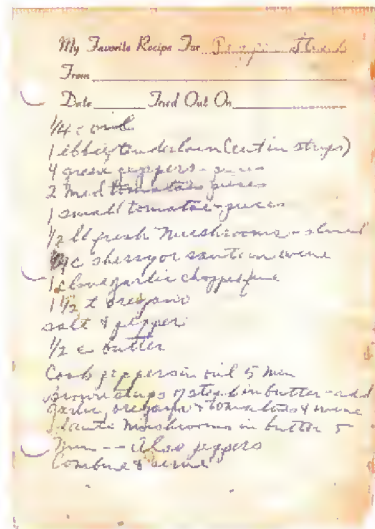 My Favorite Recipe For Pepper Steak
From
Date Tried Out On
1/4 c oil
1 lb beef tenderloin (cut in strips)
4 green peppers -
2 med tomatoes pieces
1 small tomatoe - pieces
1/2 lb fresh mushrooms - sliced
1/4 c sherry or sautern wine
1 clove garlic chopped fine
1 1/2 t oregano
salt & pepper
1/2 c butter
Cook peppers in oil 5 min
brown strips of steak in butter - add
garlic, oregano & tomatoes & wine
Saute mushrooms in butter 5
min -- Also peppers
Combine & serve